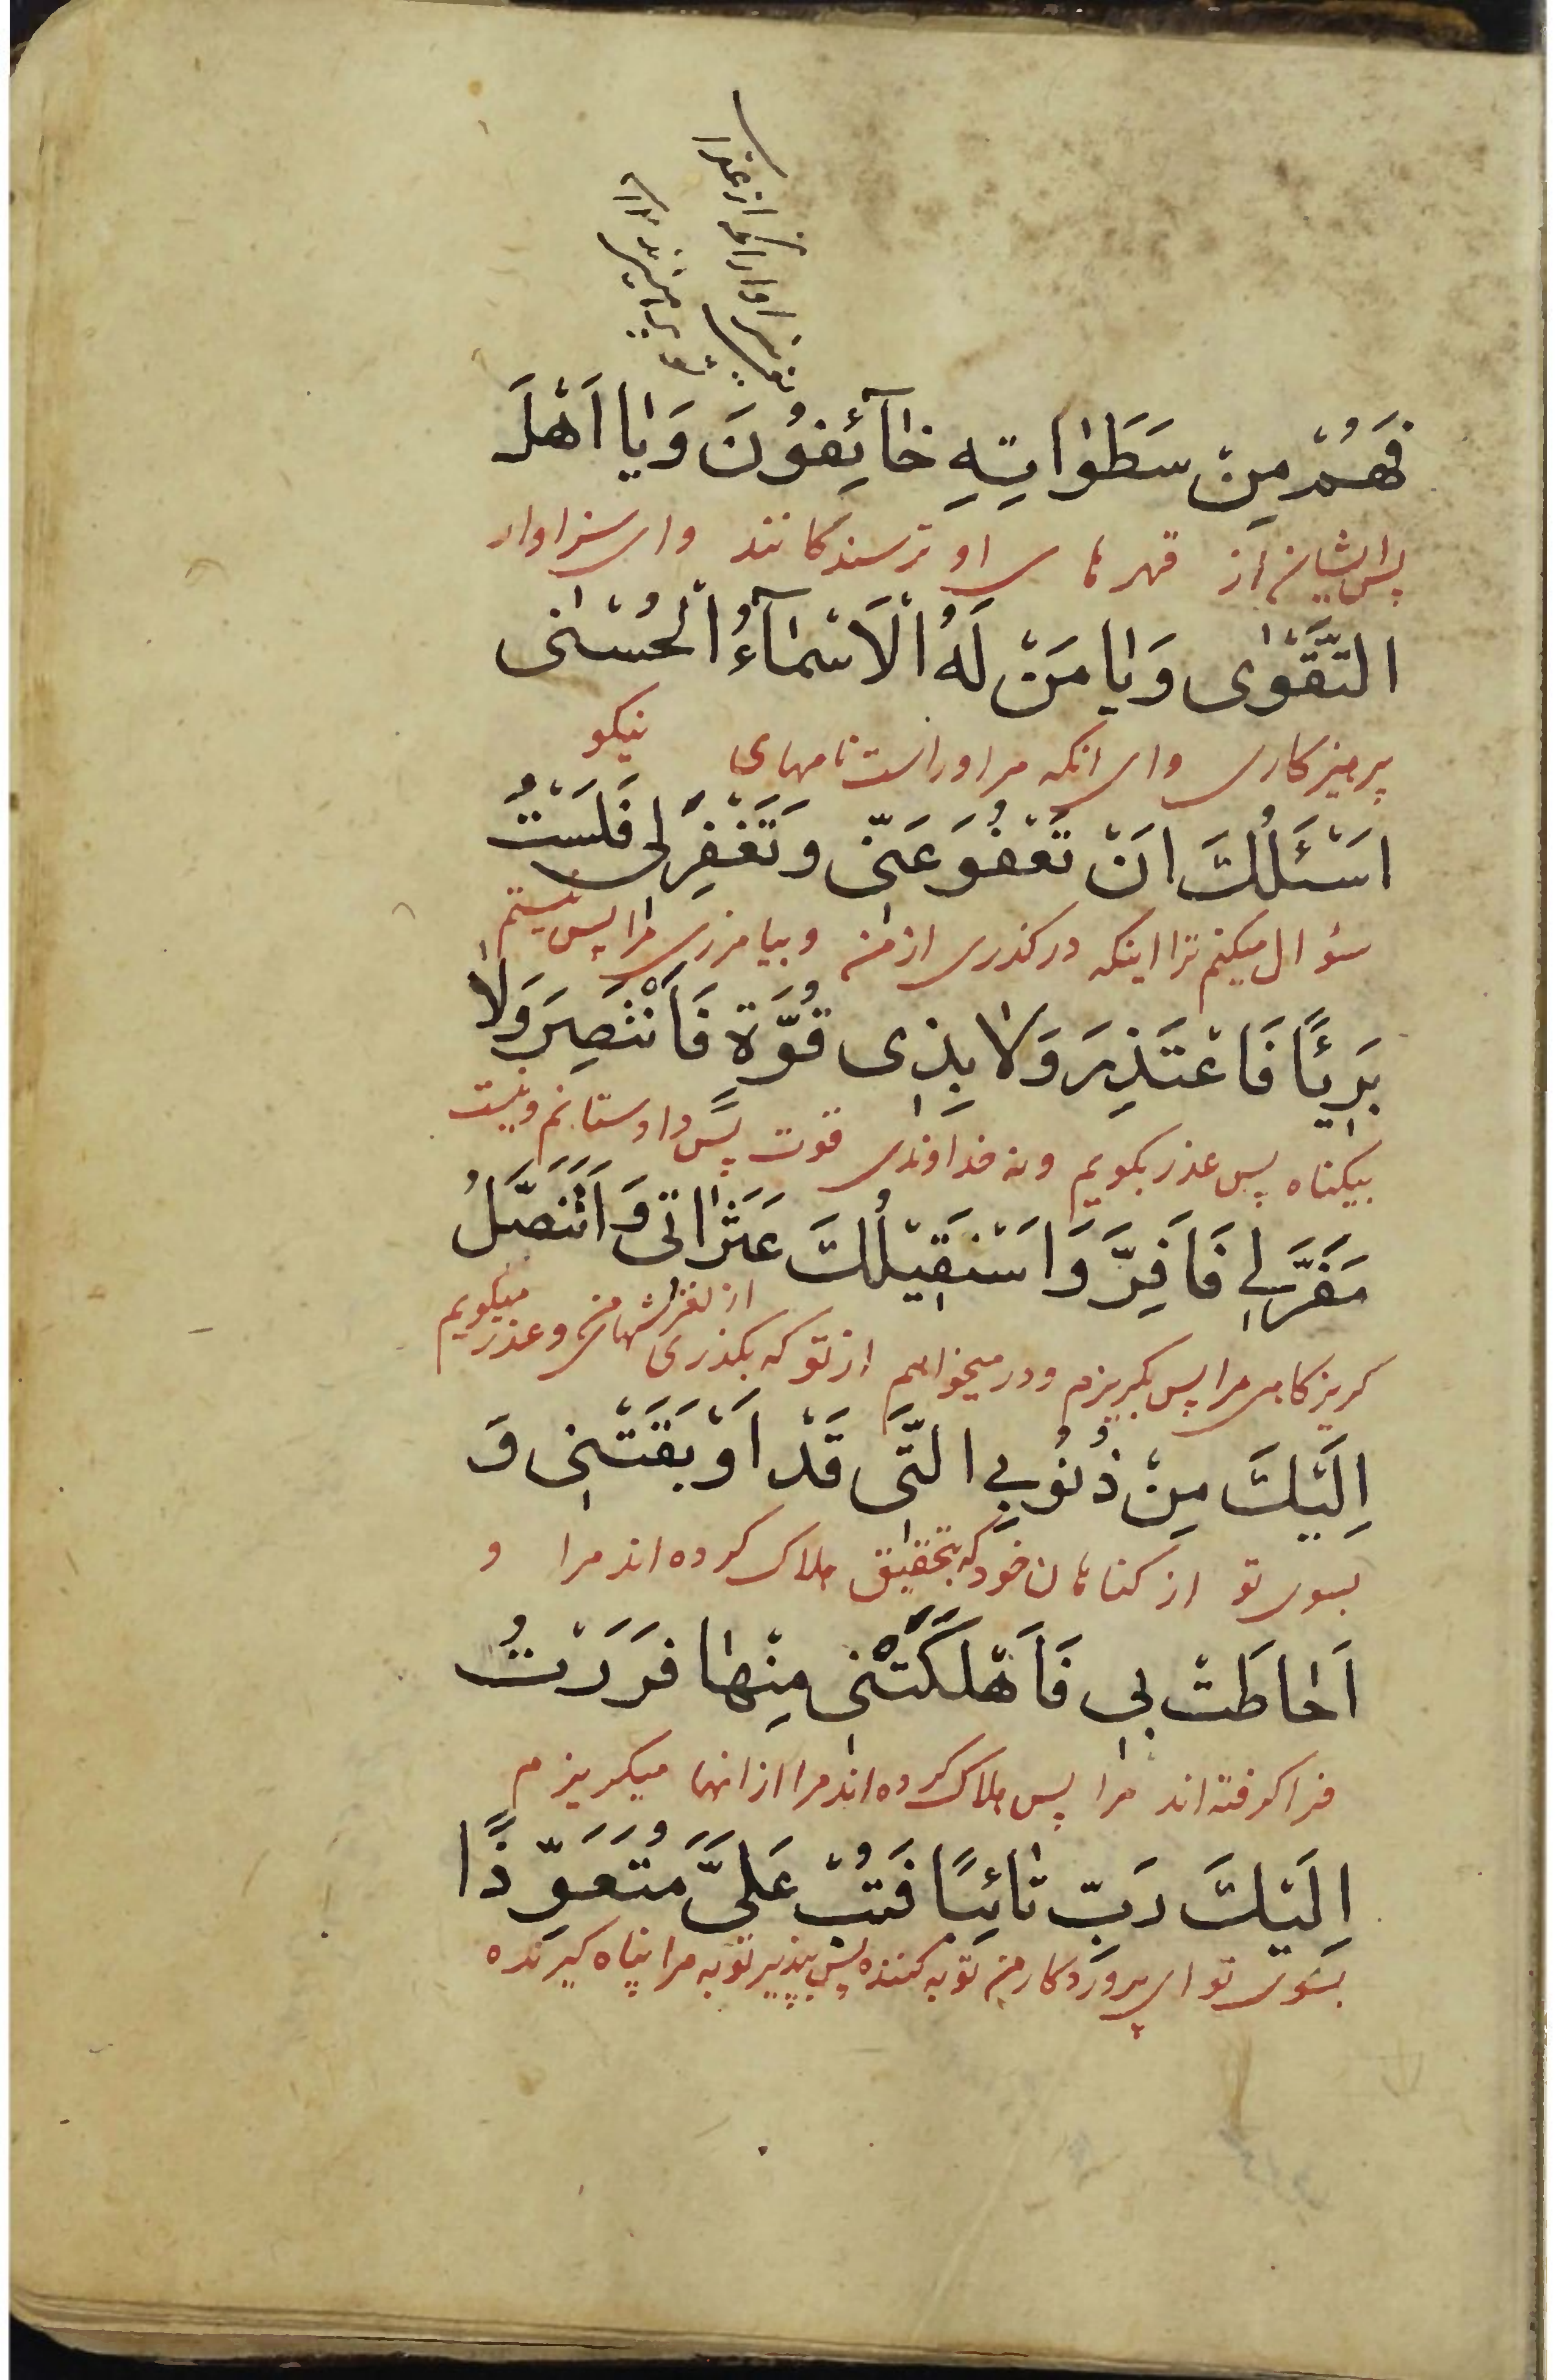 فَهُمْ مِنْ سَطَوٰاتِهِ خٰآئِفُونَ وَيٰا اَهْلَ
پس ایشان از قهرهای او ترسندکانند وای سزاوار
التَّقْوٰى وَيٰا مَنْ لَهُ الْاَسْمٰآءُ الْحُسْنٰى
پرهیزکاری وای انکه مر اوراست نامهای نیکو
اَسْئَلُكَ اَنْ تَعْفُوَ عَنّى وَتَغْفِرَ لى فَلَسْتُ
سئوال میکنم ترا اینکه درکذری از من و بیامرزی مرا پس نیستم
بَرِيْئًا فَاَعْتَذِرَ وَلٰا بِذِى قُوَّةٍ فَاَنْتَصِرَ وَلٰا
بیکناه پس عذر بکویم ونه خداوندی قوت پس داد ستانم ونیست
مَفَرَّ لِي فَاَفِرَّ وَاَسْتَقِيْلُكَ عَثَرٰاتى وَاَتَنَصَّلُ
کریزکاهی مرا پس بکریزم ودر میخواهم از تو که بکذری از لغزشهای من و عذر میکویم
اِلَيْكَ مِنْ ذُنُوبِي الَّتى قَدْ اَوْبَقَتْنِى وَ
بسوی تو از کناهان خود که بتحقیق هلاک کرده اند مرا و
اَحٰاطَتْ بِى فَاَهْلَكَتْنِى مِنْهٰا فَرَرْتُ
فرا کرفته اند مرا پس هلاک کرده اند مرا از انها میکریزم
اِلَيْكَ رَبِّ تٰائِبًا فَتُبْ عَلَيَّ مُتَعَوِّذًا
بسوی تو ای پروردکار من توبه کننده پس بپذیر توبه مرا پناه کیرنده